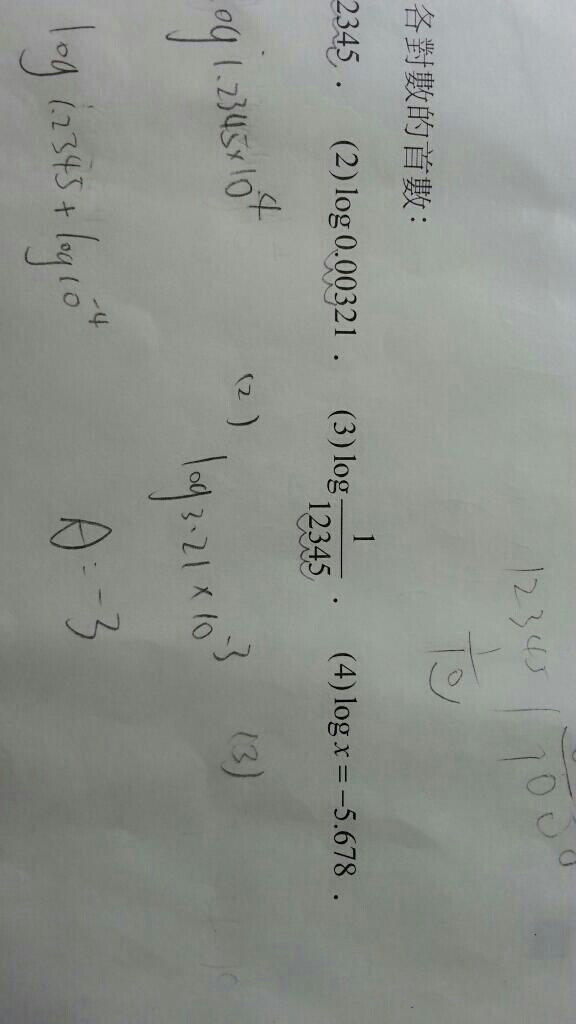 各對數的首數:
2345. (2) log 0.00321. (3) log 1/12345. (4) log x = -5.678.
log 1.2345×10^4
log 1.2345 + log 10^-4
(2)
log 3.21 × 10^-3
A: -3
(3)
12345
1/10